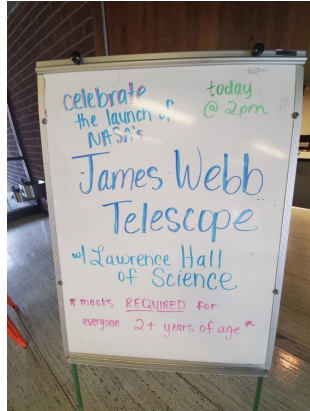 celebrate
the launch of
NASA's
today
@ 2pm
James Webb
Telescope
w/ Lawrence Hall
of Science
* masks REQUIRED for
everyone 2+ years of age *